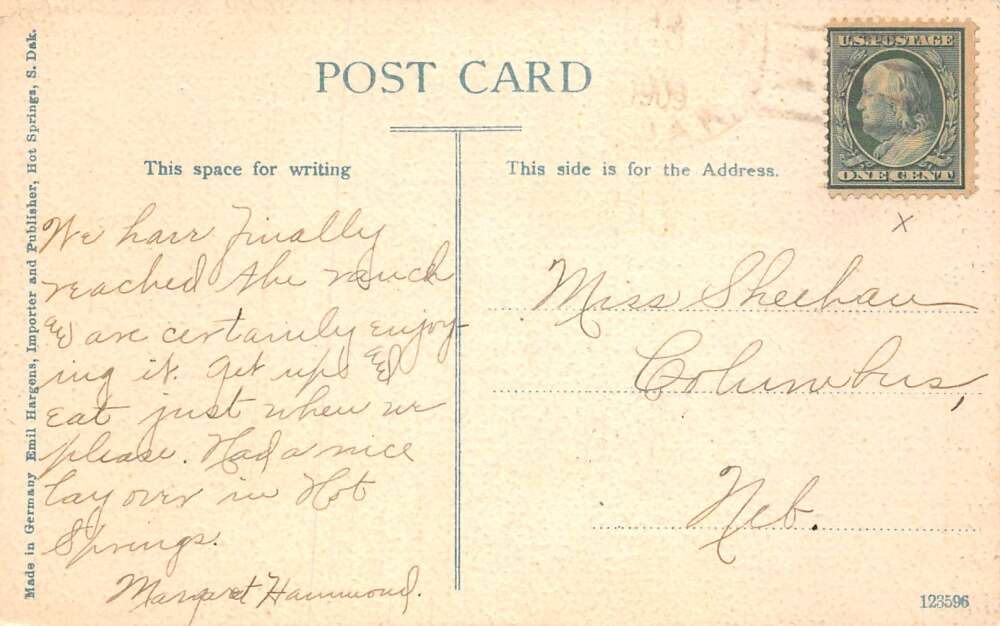 POST CARD
This space for writing
This side is for the Address.
U.S. POSTAGE
ONE CENT
Made in Germany Emil Hargens, Importer and Publisher, Hot Springs, S. Dak.
We have finally
reached the ranch
and are certainly enjoy-
ing it. Get up and
eat just when we
please. Had a nice
lay over in Hot
Springs.
Margaret Hammond.
Miss Sheehan
Columbus,
Neb.
x
123596